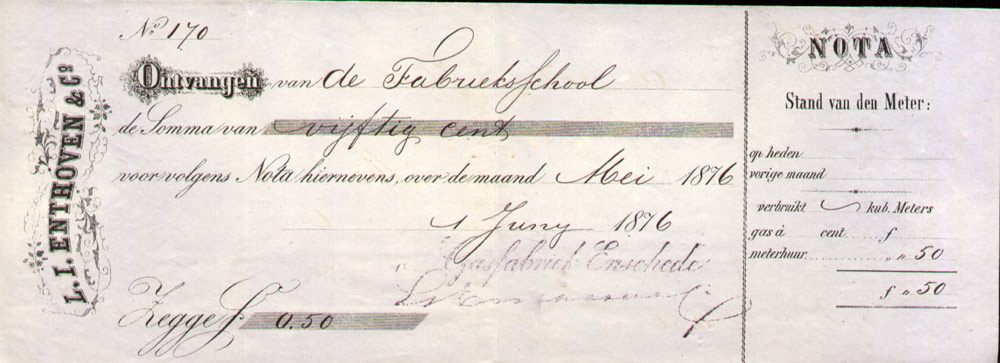 L. I. ENTHOVEN & Co
No. 170
Ontvangen van de Fabrieksschool
de Somma van vijftig cent
voor volgens Nota hiernevens, over de maand Mei 1876
1 Juny 1876
Gasfabriek Enschede
Zegge f. 0.50
NOTA
Stand van den Meter:
op heden
vorige maand
verbruikt kub. Meters
gas à cent f
meterhuur „ „ 50
f „ 50